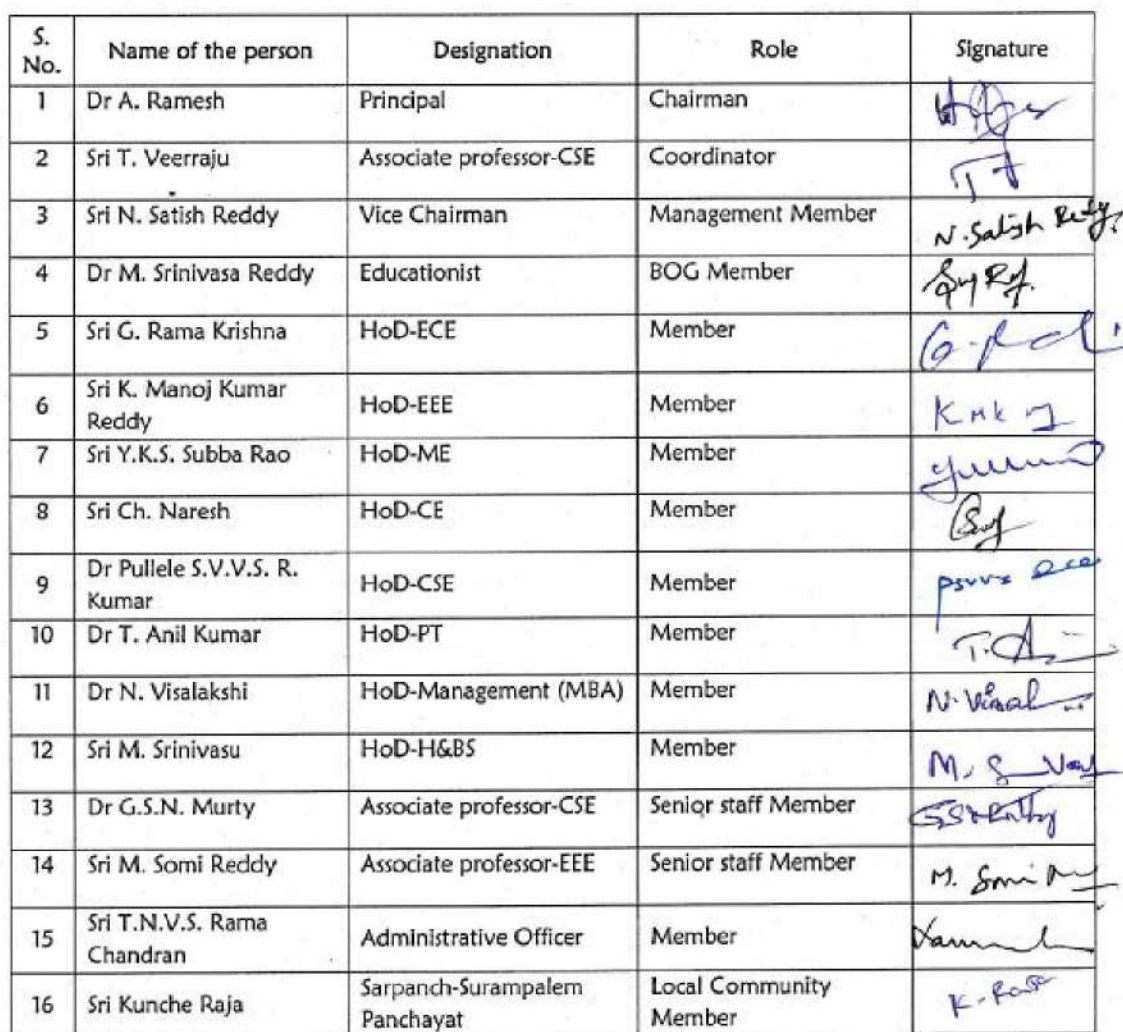 S. No. Name of the person Designation Role Signature
1 Dr A. Ramesh Principal Chairman
2 Sri T. Veerraju Associate professor-CSE Coordinator
3 Sri N. Satish Reddy Vice Chairman Management Member N. Satish Reddy
4 Dr M. Srinivasa Reddy Educationist BOG Member
5 Sri G. Rama Krishna HoD-ECE Member
6 Sri K. Manoj Kumar Reddy HoD-EEE Member
7 Sri Y.K.S. Subba Rao HoD-ME Member
8 Sri Ch. Naresh HoD-CE Member
9 Dr Pullele S.V.V.S. R. Kumar HoD-CSE Member
10 Dr T. Anil Kumar HoD-PT Member
11 Dr N. Visalakshi HoD-Management (MBA) Member
12 Sri M. Srinivasu HoD-H&BS Member
13 Dr G.S.N. Murty Associate professor-CSE Senior staff Member
14 Sri M. Somi Reddy Associate professor-EEE Senior staff Member
15 Sri T.N.V.S. Rama Chandran Administrative Officer Member
16 Sri Kunche Raja Sarpanch-Surampalem Panchayat Local Community Member K. Raja